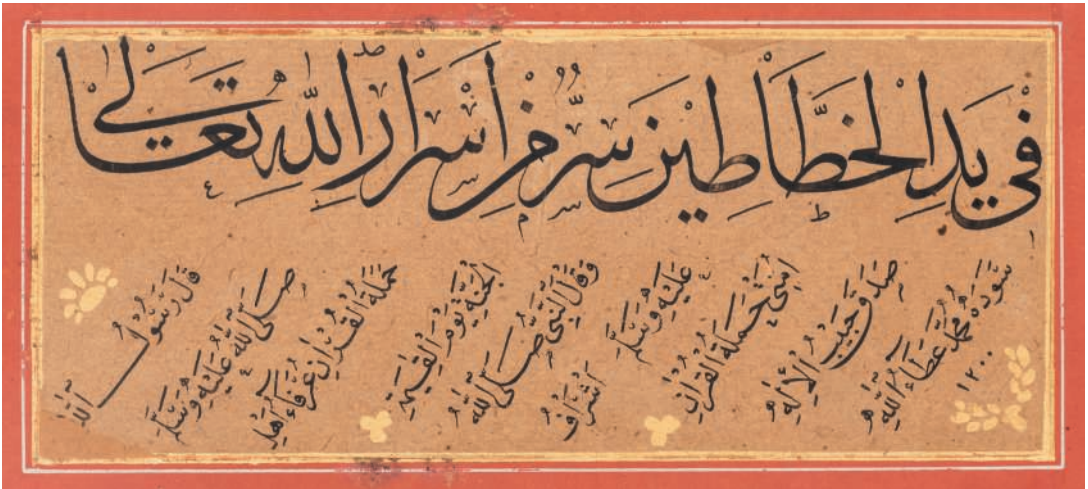 في يد الخطاطين سر من أسرار الله تعالى
قال رسول الله
صلى الله عليه وسلم
حملة القران عرفاء اهل
الجنة يوم القيمة
وقال النبي صلى الله
عليه وسلم
اشراف
امتي حملة القران
صدق حبيب الإله
سوده محمد عطاء الله
١٢٠٠